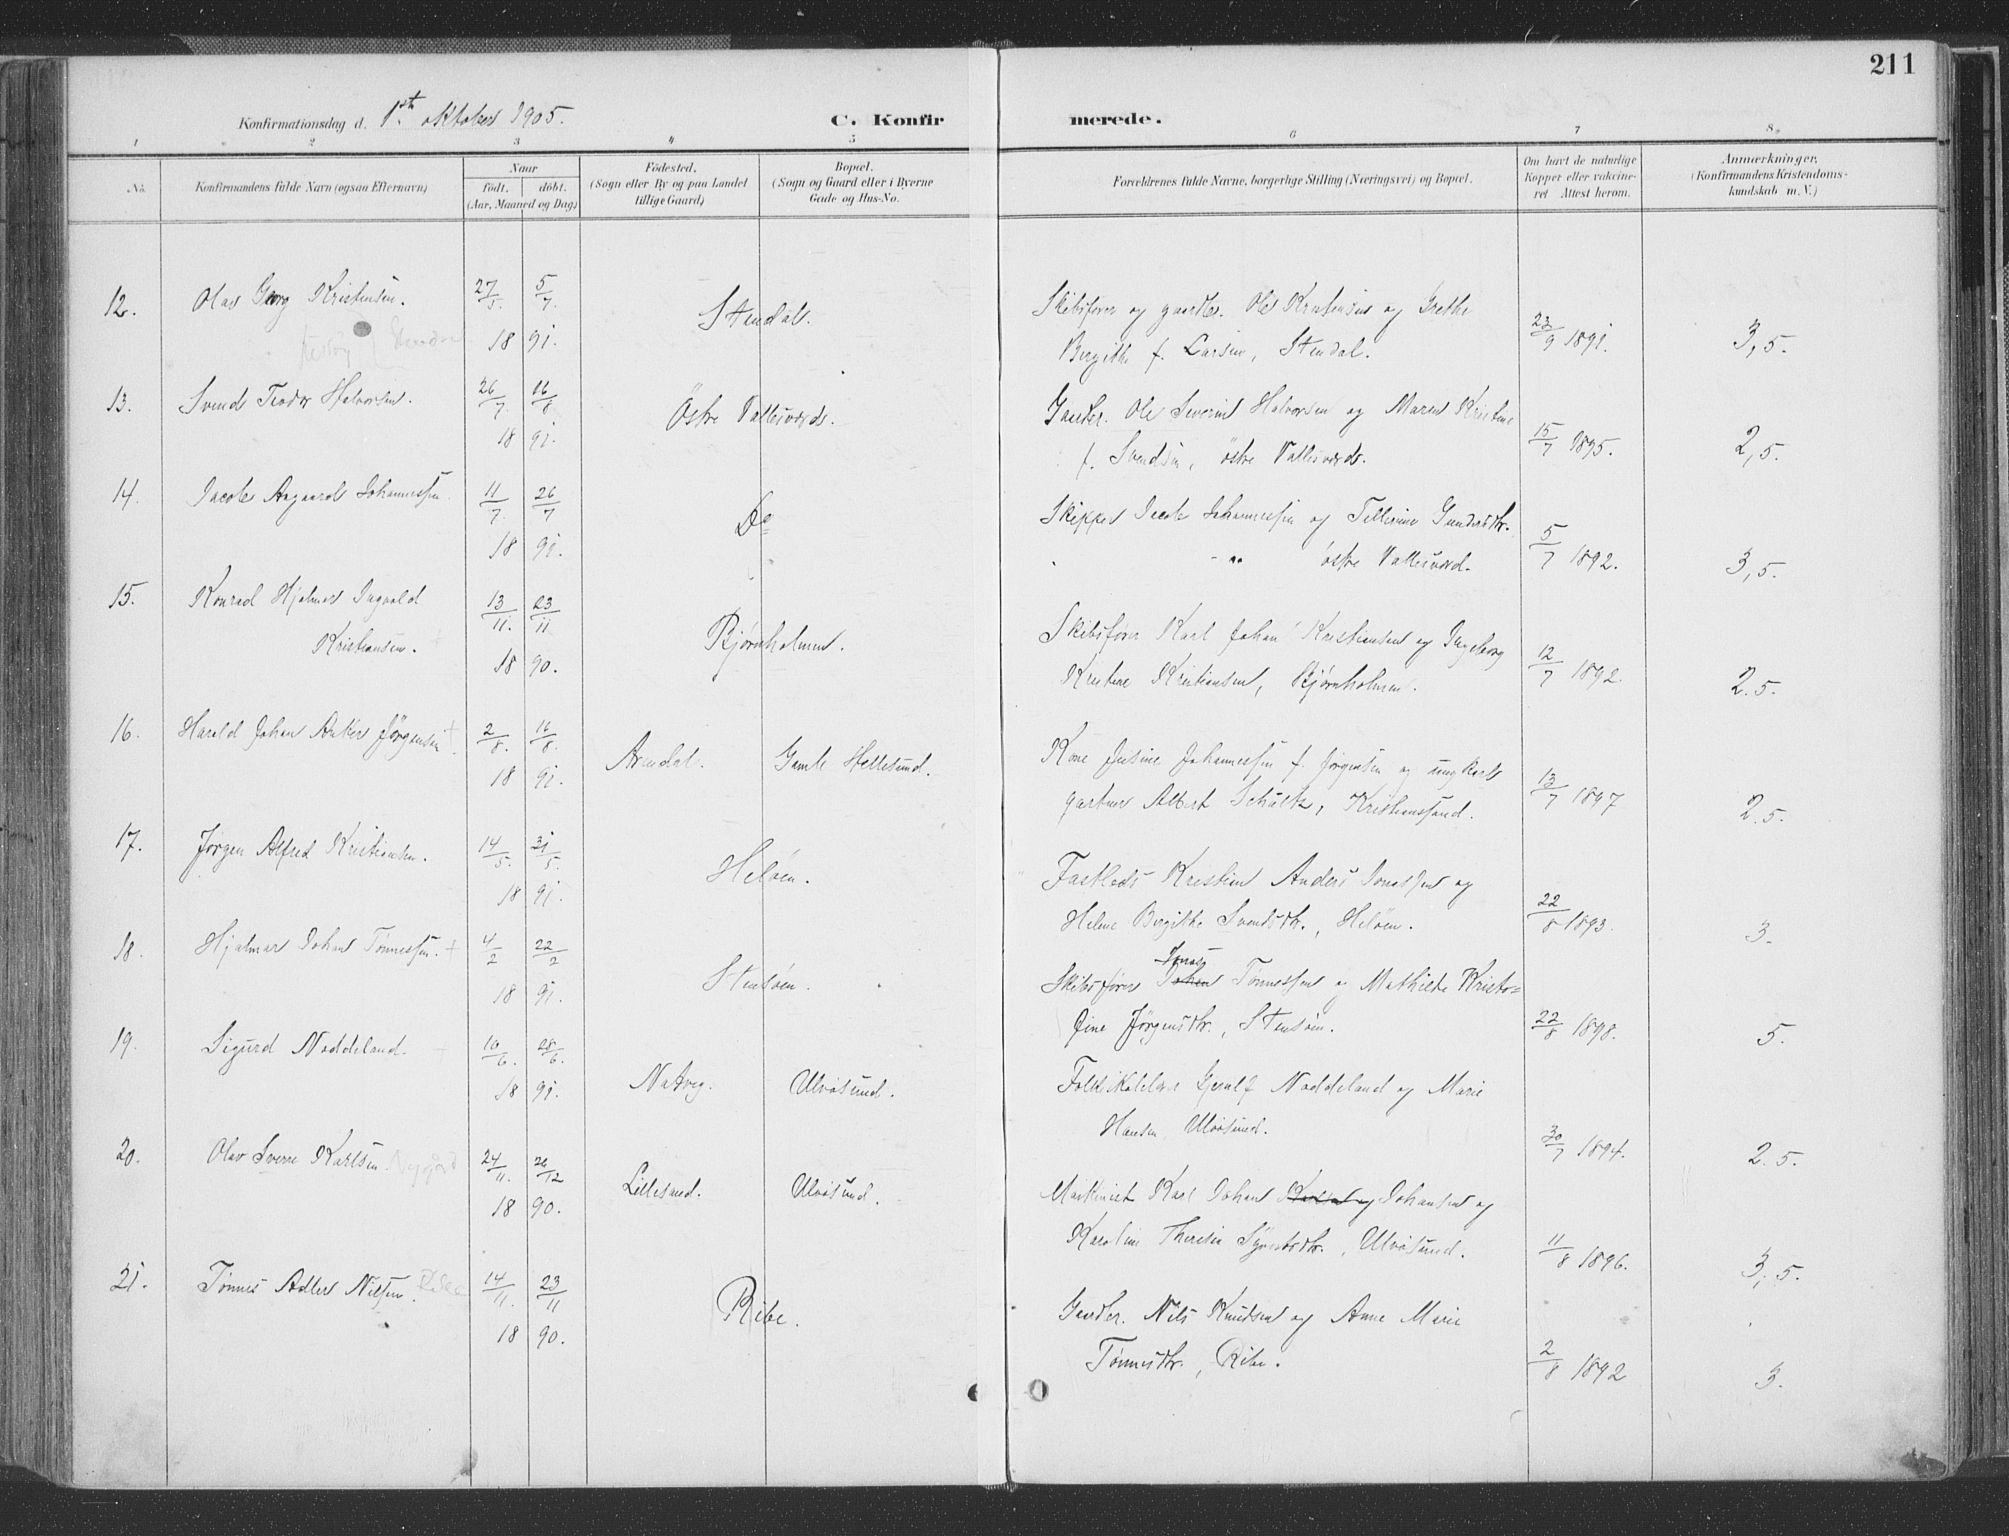 211
Konfirmationsdag d. 1ste oktober 1905. C. Konfirmerede.
1 2 3 4 5 6 7 8
No. Konfirmandens fulde Navn (ogsaa Efternavn) Naar født. døbt. (Aar, Maaned og Dag) Födested. (Sogn eller By og paa Landet tillige Gaard) Bopæl. (Sogn og Gaard eller i Byerne Gade og Hus-No. Forældrenes fulde Navne, borgerlige Stilling (Næringsvei) og Bopæl. Om havt de naturlige Kopper eller vakcineret Attest herom. Anmærkninger, (Konfirmandens Kristendomskundskab m. V.)
12. Olav Georg Kristensen. 27/5. 18 91. 5/7. Stendal. Skibsfører og gaardbr. Ole Kristensen og Grethe
Bergithe f. Larsen, Stendal. 23/9 1891. 3,5.
13. Svend Teodor Halvorsen. 26/7. 18 91. 16/8 Östre Vallesværd. Gaardbr. Ole Severin Halvorsen og Maren Kristine
f. Svendsen, østre Vallesværd. 15/7 1895. 2,5.
14. Jacob Aagaard Johannessen. 11/7. 18 91. 26/7 Do Skipper Jacob Johannessen og Tellerine Gundersdtr.
østre Vallesværd. 5/7 1892. 3,5.
15. Konrad Hjalmar Ingvald
Kristiansen. 13/11. 18 90. 23/11 Bjørnholmen. Skibsfører Karl Johan Kristiansen og Ingeborg
Kristine Kristiansen, Bjørnholmen. 12/7 1892. 2.5.
16. Harald Johan Anker Jørgensen 2/8. 18 91. 16/8. Arendal. Gamle Hellesund. Kone Jusine Johannessen f. Jørgensen og ungkarl
gartner Albert Schultz, Kristianssand. 13/7 1897 2.5.
17. Jørgen Alfred Kristiansen. 14/5. 18 91. 31/5. Heløen. Fastlods Kristian Anders Jonassen og
Helene Bergithe Svendsdtr., Heløen. 22/8 1893. 3.
18. Hjalmar Johan Tønnessen. 4/2 18 91. 22/2 Stensøen. Skibsfører Johan Jonas Tønnessen og Mathilde Kristo-
fine Jørgensdtr., Stensøen. 22/8 1898. 5.
19. Sigurd Noddeland. 10/6. 18 91. 28/6. Natvig. Ulvøsund. Folkskolelærer Gjerulf Noddeland og Marie
Hansen, Ulvøsund. 30/7 1894. 2.5.
20. Olav Sverre Karlsen Nygård 24/11. 18 90. 26/12 Lillesand. Ulvøsund. Maskinist Karl Johan Johansen og
Karoline Theresie Syvertsdtr., Ulvøsund. 11/8 1896. 3,5.
21. Tønnes Adler Nilsen. Ribe 14/11. 18 90. 23/11 Ribe. Gaardbr. Nils Knudsen og Anne Marie
Tønnesdtr., Ribe. 2/8 1892 3.